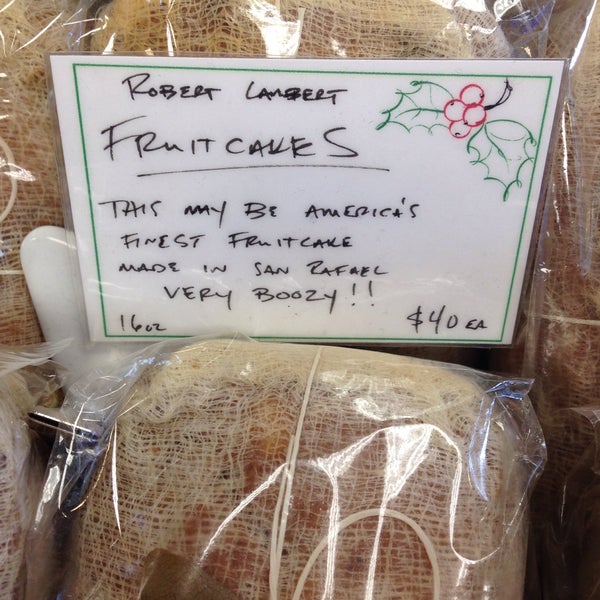 ROBERT LAMBERT
FRUITCAKES
THIS MAY BE AMERICA'S
FINEST FRUITCAKE
MADE IN SAN RAFAEL
VERY BOOZY!!
16oz $40 EA